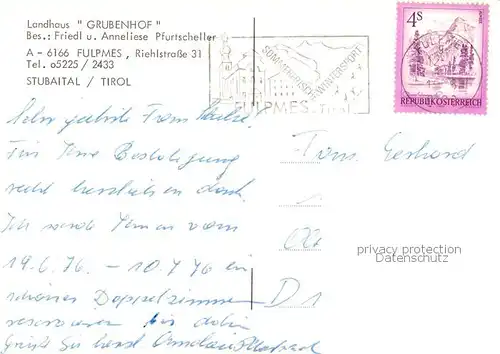 Landhaus " GRUBENHOF "
Bes.: Friedl u. Anneliese Pfurtscheller
A - 6166 FULPMES, Riehlstraße 31
Tel. o5225 / 2433
STUBAITAL / TIROL
SOMMERFRISCHE WINTERSPORT
FULPMES Tirol
4s
REPUBLIK ÖSTERREICH
FULPMES
Sehr geehrte Frau
Für Ihre Bestätigung
recht herzlichen Dank.
Ich werde Ihnen vom
19.6.76 - 10.7.76 ein
schönes Doppelzimmer
reservieren bis dahin
Grüßt Sie herzl.
Gerhard
D 1
privacy protection
Datenschutz